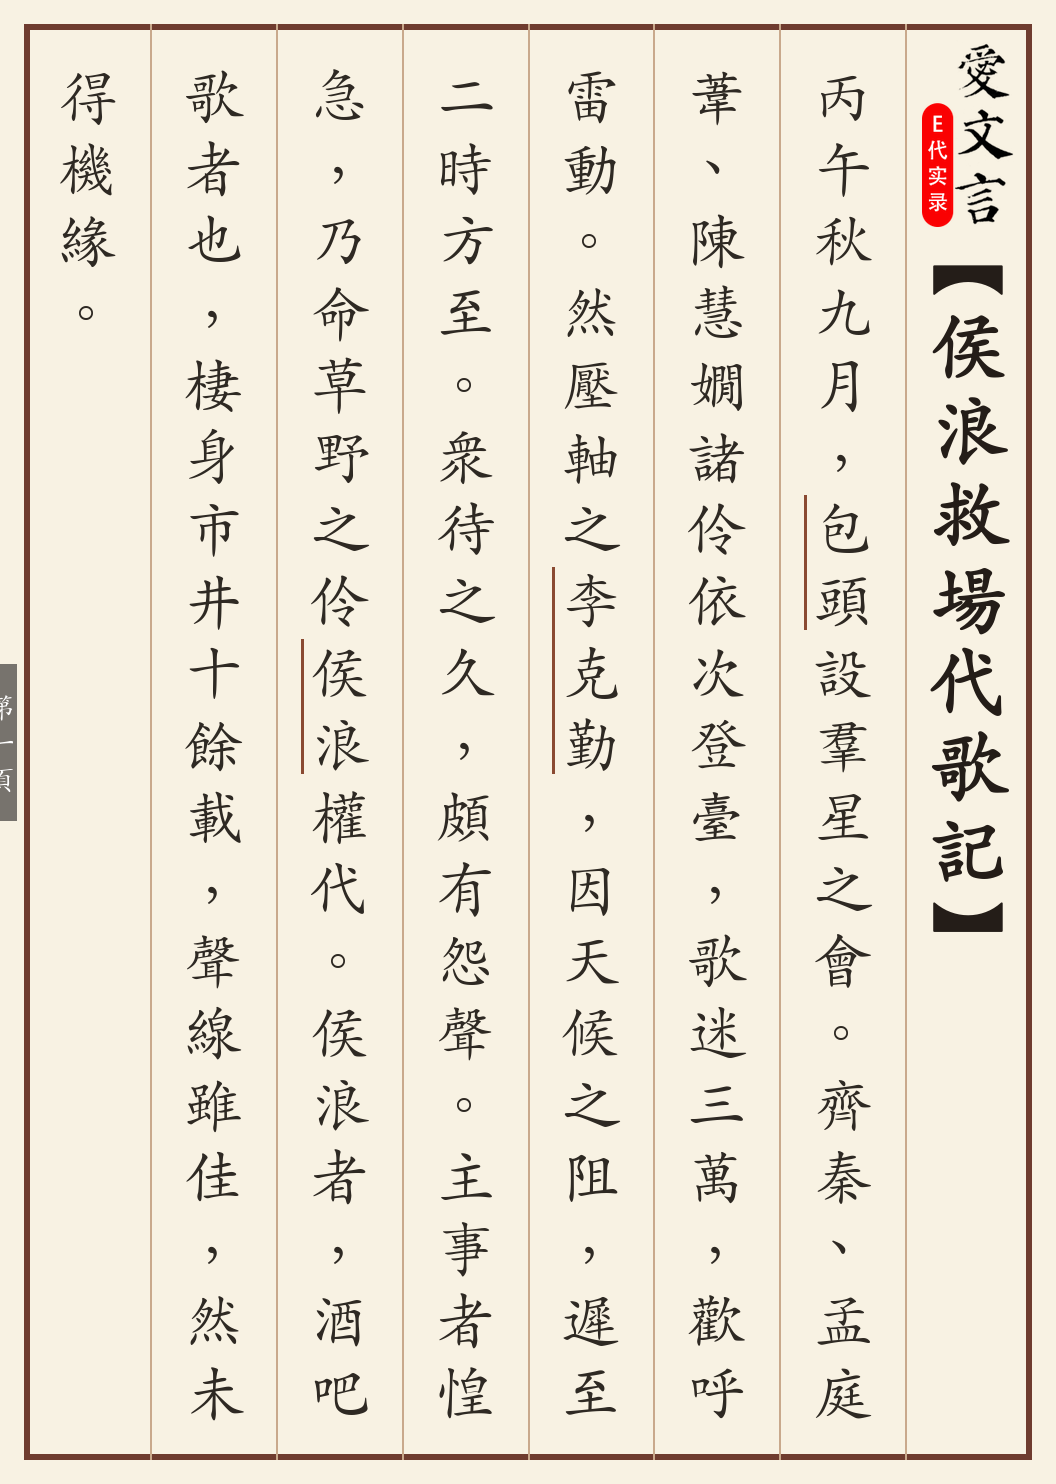 愛文言
E代实录
【侯浪救場代歌記】
丙午秋九月，包頭設羣星之會。齊秦、孟庭
葦、陳慧嫺諸伶依次登臺，歌迷三萬，歡呼
雷動。然壓軸之李克勤，因天候之阻，遲至
二時方至。衆待之久，頗有怨聲。主事者惶
急，乃命草野之伶侯浪權代。侯浪者，酒吧
歌者也，棲身市井十餘載，聲線雖佳，然未
得機緣。
第一頁